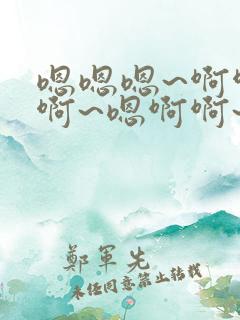 嗯嗯嗯~啊
啊~嗯啊啊~
鄭軍先
未经同意禁止转载